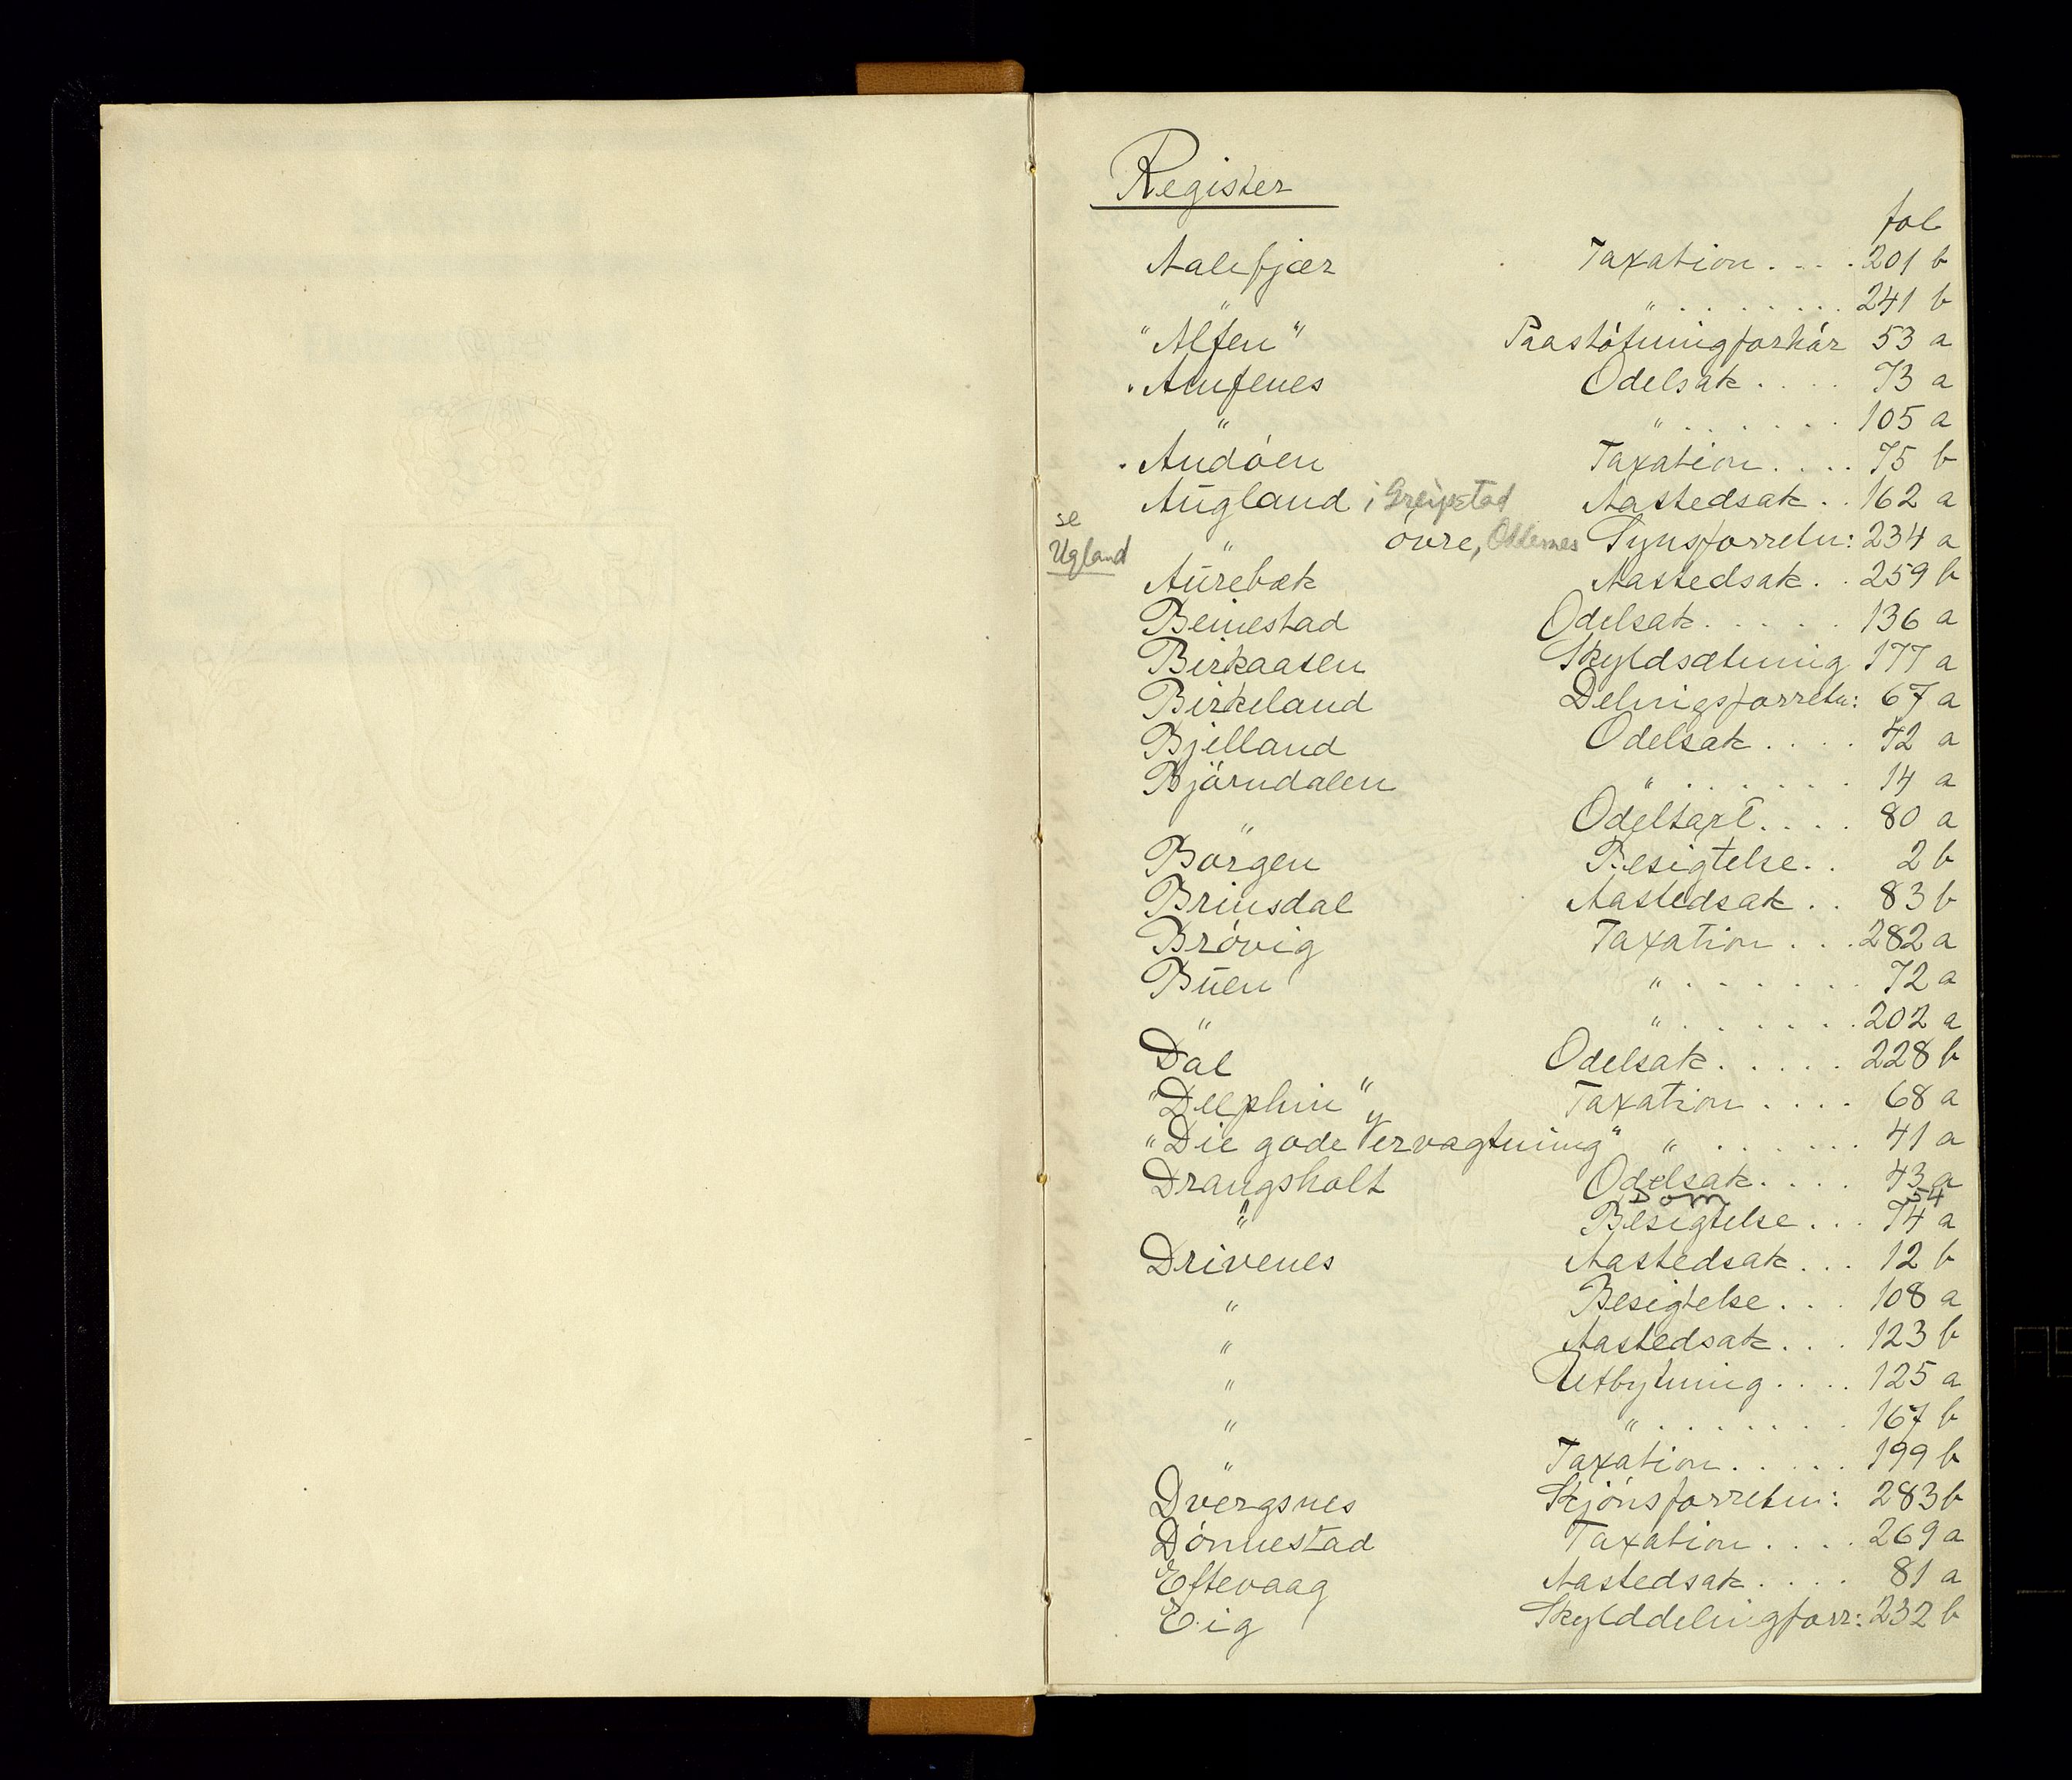 Register
fol
Aalefjær Taxation . . . . 201 b
" " . . . . . . . 241 b
"Alfen" Paastötningforhör 53 a
Amfenes Odelsak . . . . 73 a
" " . . . . . . . 105 a
Andöen Taxation . . . . 75 b
Augland i Greipstad Aastedsak . . 162 a
se Ugland " övre, Oddernes Synsforretn: 234 a
Aurebæk Aastedsak . . 259 b
Beinestad Odelsak . . . . . 136 a
Birkaasen Skyldsætning 177 a
Birkeland Delnigsforretn: 67 a
Bjelland Odelsak . . . . 42 a
Bjørndalen " . . . . . . . 14 a
" Odelstaxt . . . . 80 a
Borgen Besigtelse . . 2 b
Brinsdal Aastedsak . . 83 b
Brövig Taxation . . . 282 a
Buen " . . . . . . . 72 a
" " . . . . . . . 202 a
Dal Odelsak . . . . . 228 b
"Delphin" Taxation . . . . 68 a
"Die gode Vervagtning" " . . . . . . 41 a
Drangsholt Odelsak . . . . 43 a
Dom 54
" Besigtelse . . . 74 a
Drivenes Aastedsak . . . 12 b
" Besigtelse . . . 108 a
" Aastedsak . . . 123 b
" Utbytning . . . . 125 a
" " . . . . . . . 167 b
" Taxation . . . . . 199 b
Dvergsnes Skjönsforretn: 283 b
Dönnestad Taxation . . . . 269 a
Eftevaag Aastedsak . . . . 81 a
Eig Skylddelingforr: 232 b